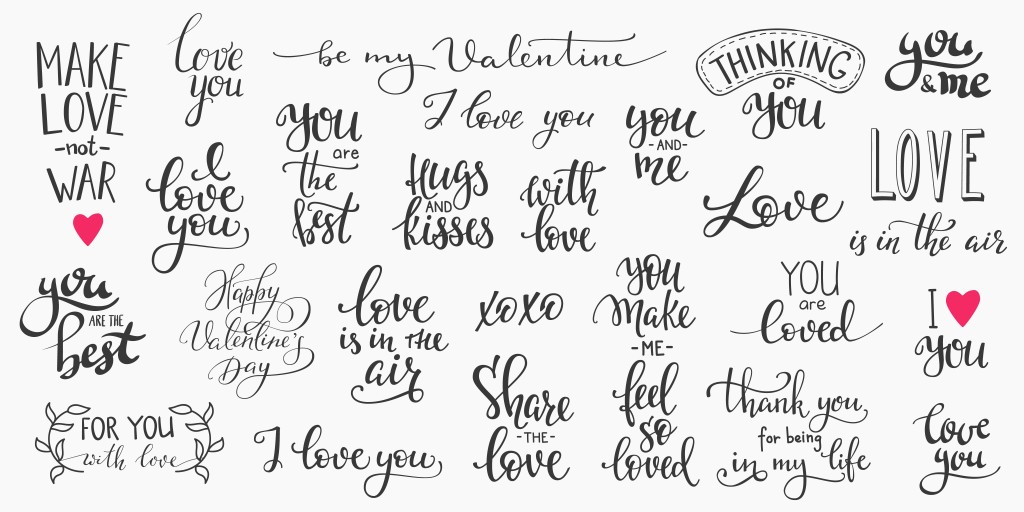 MAKE
LOVE
-not-
WAR
love
you
be my Valentine
THINKING
OF
YOU
you
& me
I love you
you
are
the
best
you
-AND-
me
LOVE
is in the air
I
love
you
Hugs
AND
kisses
with
love
Love
you
ARE THE
best
Happy
Valentine's
Day
love
is in THE
air
xoxo
you
Make
-ME-
feel
so
loved
YOU
are
loved
I
you
FOR YOU
with love
I love you
Share
-THE-
love
thank you
for being
in my life
love
you